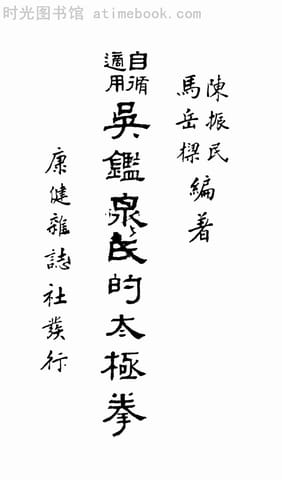 时光图书馆 www.atimebook.com
陳振民
馬岳樑
編著
自循
適用
吳鑑泉氏的太極拳
康健雜誌社發行